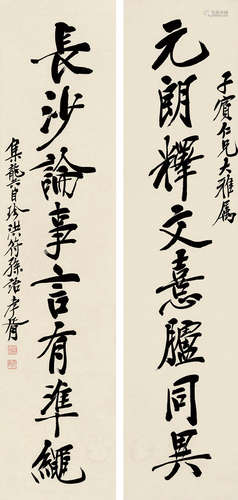 子賓仁兄大雅屬
元朗釋文意臚同異
長沙論事言有準繩
集龔自珍洪符孫語